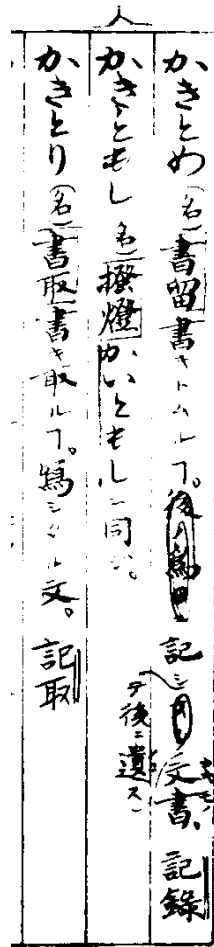 かきとめ（名）書留 書キトムルヿ。後ノ爲ニ記シ文書、記錄
テ後ニ遺ス
かきともし（名）撥燈 かいともしニ同ジ。
かきとり（名）書取 書キ取ルヿ。寫シタル文。記取